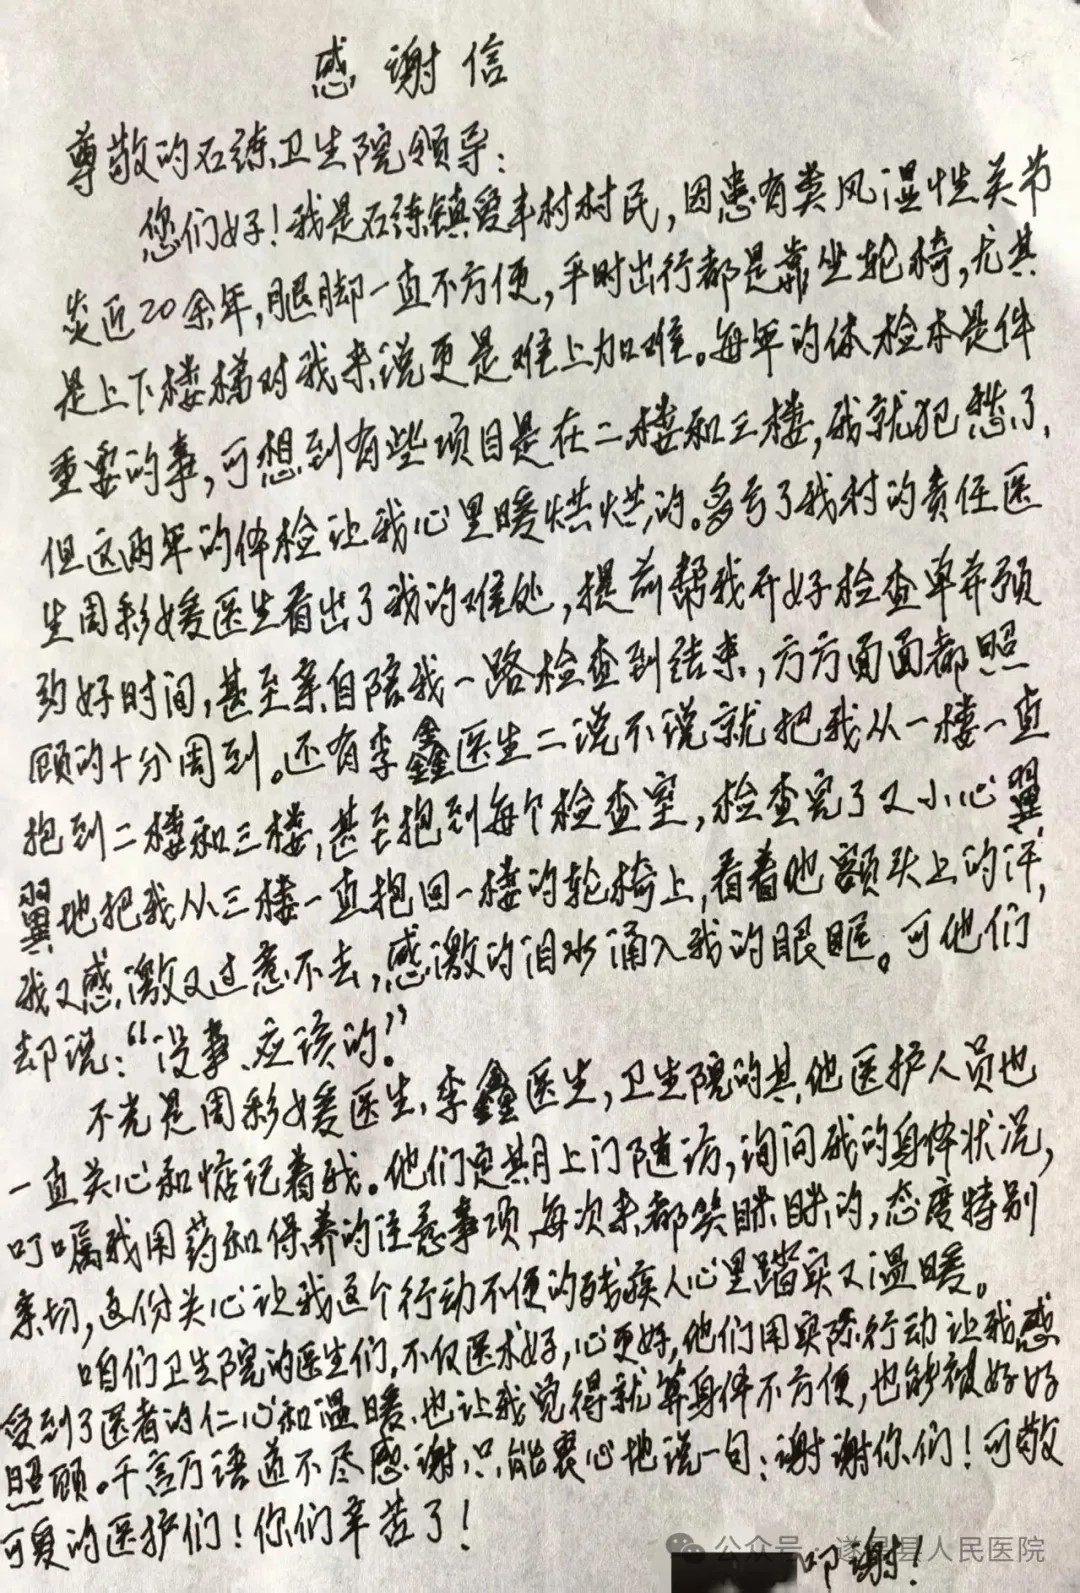 感谢信
尊敬的石练卫生院领导：
您们好！我是石练镇爱丰村村民，因患有类风湿性关节
炎近20余年，腿脚一直不方便，平时出行都是靠坐轮椅，尤其
是上下楼梯对我来说更是难上加难。每年的体检本是件
重要的事，可想到有些项目是在二楼和三楼，我就犯愁了，
但这两年的体检让我心里暖烘烘的。多亏了我村的责任医
生周彩媛医生看出了我的难处，提前帮我开好检查单并预
约好时间，甚至亲自陪我一路检查到结束，方方面面都照
顾的十分周到。还有李鑫医生二说不说就把我从一楼一直
抱到二楼和三楼，甚至抱到每个检查室，检查完了又小心翼
翼地把我从三楼一直抱回一楼的轮椅上，看着他额头上的汗，
我又感激又过意不去，感激的泪水涌入我的眼眶。可他们
却说：“没事、应该的。”
不光是周彩媛医生，李鑫医生，卫生院的其他医护人员也
一直关心和惦记着我。他们定期上门随访，询问我的身体状况，
叮嘱我用药和保养的注意事项，每次来都笑眯眯的，态度特别
亲切，这份关心让我这个行动不便的残疾人心里踏实又温暖。
咱们卫生院的医生们，不仅医术好，心更好，他们用实际行动让我感
受到了医者的仁心和温暖，也让我觉得就算身体不方便，也能被好好
照顾。千言万语道不尽感谢，只能衷心地说一句：谢谢你们！可敬
可爱的医护们！你们辛苦了！
叩谢！
公众号 · 遂昌县人民医院